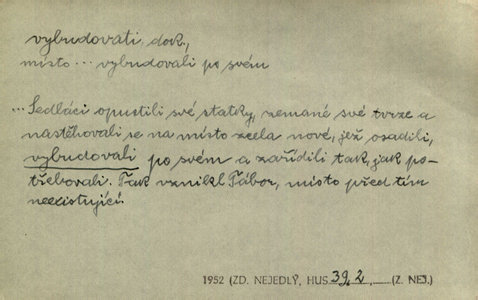 vybudovati, dok.,
místo ... vybudovali po svém
... Sedláci opustili své statky, zemané své tvrze a
nastěhovali se na místo zcela nové, jež osadili,
vybudovali po svém a zařídili tak, jak po-
třebovali. Tak vznikl Tábor, místo před tím
neexistující.
1952 (ZD. NEJEDLÝ, HUS 39, 2, (Z. NEJ.)